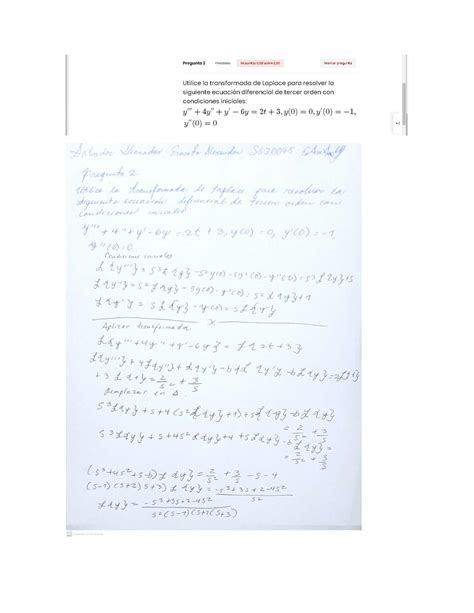 Pregunta 2
Marcar pregunta
Utilice la transformada de Laplace para resolver la
siguiente ecuación diferencial de tercer orden con
condiciones iniciales:
y''' + 4y'' + y' − 6y = 2t + 3, y(0) = 0, y'(0) = −1,
y''(0) = 0
Pregunta 2
Utilice la transformada de Laplace para resolver la
siguiente ecuación diferencial de tercero orden con
condiciones iniciales
y''' + 4''+y'-6y = 2t + 3, y(0) = 0, y'(0) = -1
y''(0)=0.
Condiciones iniciales
ℒ{y'''} = s³ℒ{y} - s²y(0) - sy'(0) - y''(0) = s³ℒ{y}+s
ℒ{y''} = s²ℒ{y} - sy(0) - y'(0) = s²ℒ{y}+1
ℒ{y'} = sℒ{y} - y(0) = sℒ{y}
x
Aplicar transformada
ℒ{y'''+4y''+y'-6y} = ℒ{2t+3}
s³ℒ{y}+s+4(s²ℒ{y}+1)+sℒ{y}-6ℒ{y}
= 2/s² + 3/s
s³ℒ{y}+s+4s²ℒ{y}+4+sℒ{y}-6ℒ{y}=
= 2/s² + 3/s
(s³+4s²+s-6)ℒ{y} = 2/s² + 3/s - s - 4
(s-1)(s+2)(s+3)ℒ{y} = -s³+3s+2-4s²/s²
ℒ{y} = -s³+3s+2-4s²/s²(s-1)(s+2)(s+3)